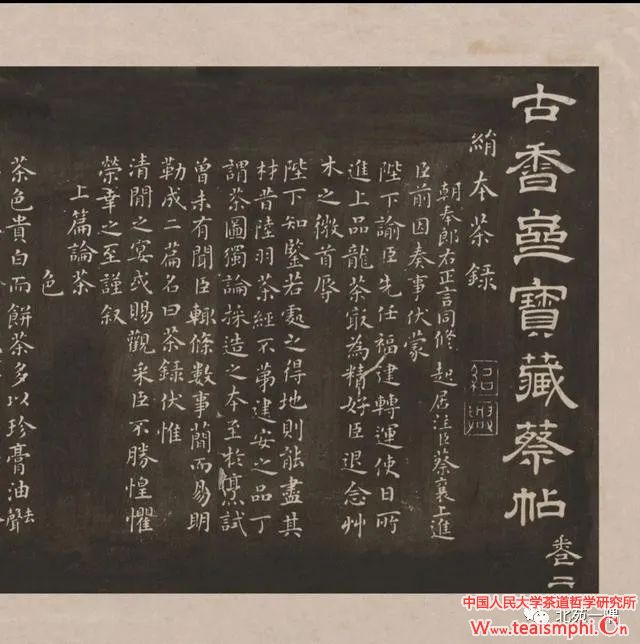 古香齋寶藏蔡帖 卷二
絹本茶録
紹興
朝奉郎右正言同修起居注臣蔡襄上進
臣前因奏事伏蒙
陛下諭臣先任福建轉運使日所
進上品龍茶冣為精好臣退念艸
木之微首辱
陛下知鑒若處之得地則能盡其
材昔陸羽茶經不第建安之品丁
謂茶圖獨論採造之本至於烹試
曾未有聞臣輒條數事簡而易明
勒成二篇名曰茶録伏惟
清閒之宴或賜觀采臣不勝惶懼
榮幸之至謹叙
上篇論茶
色
茶色貴白而餅茶多以珍膏油去聲
北苑一隅
中国人民大学茶道哲学研究所
www.teaismphi.Cn